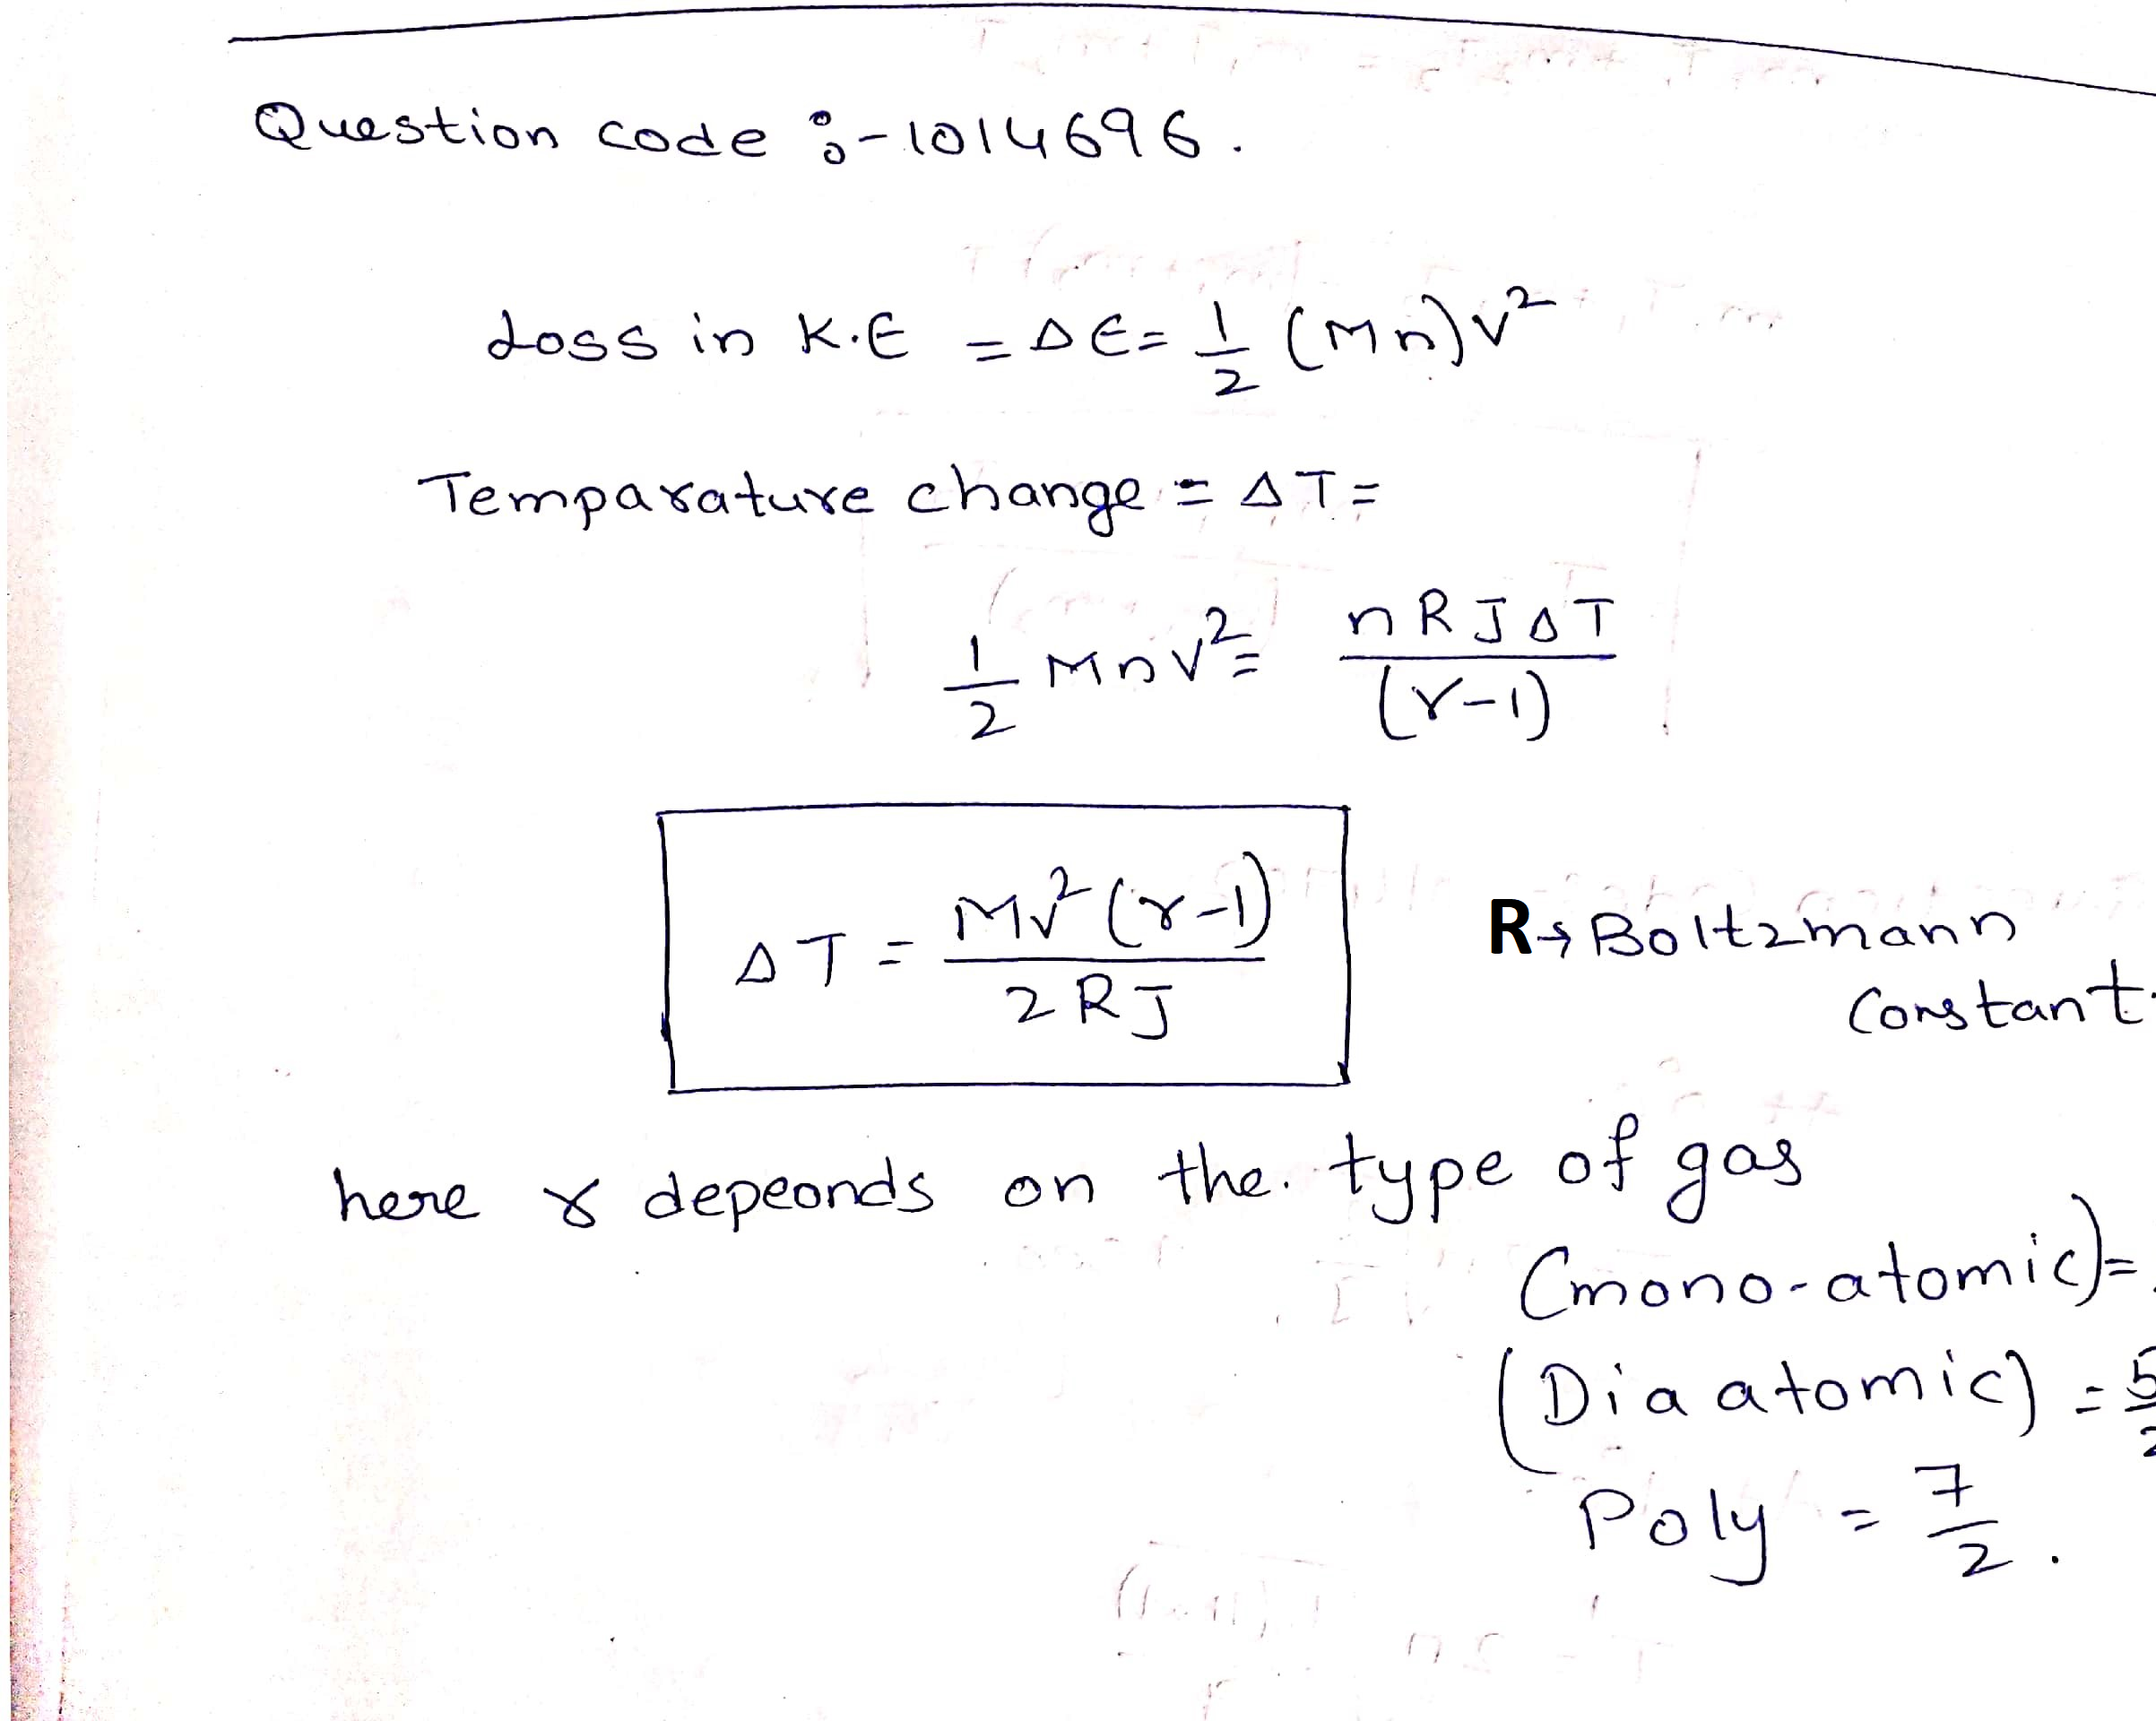 Question code :- 1014696.
Loss in K.E = ΔE = 1/2 (Mn)v²
Temparature change = ΔT =
1/2 Mnv² = nRJΔT/(γ-1)
ΔT = Mv²(γ-1)/2RJ
R→ Boltzmann
Constant.
here γ depeonds on the. type of gas
(mono-atomic) =
(Dia atomic) = 5/2
Poly = 7/2.